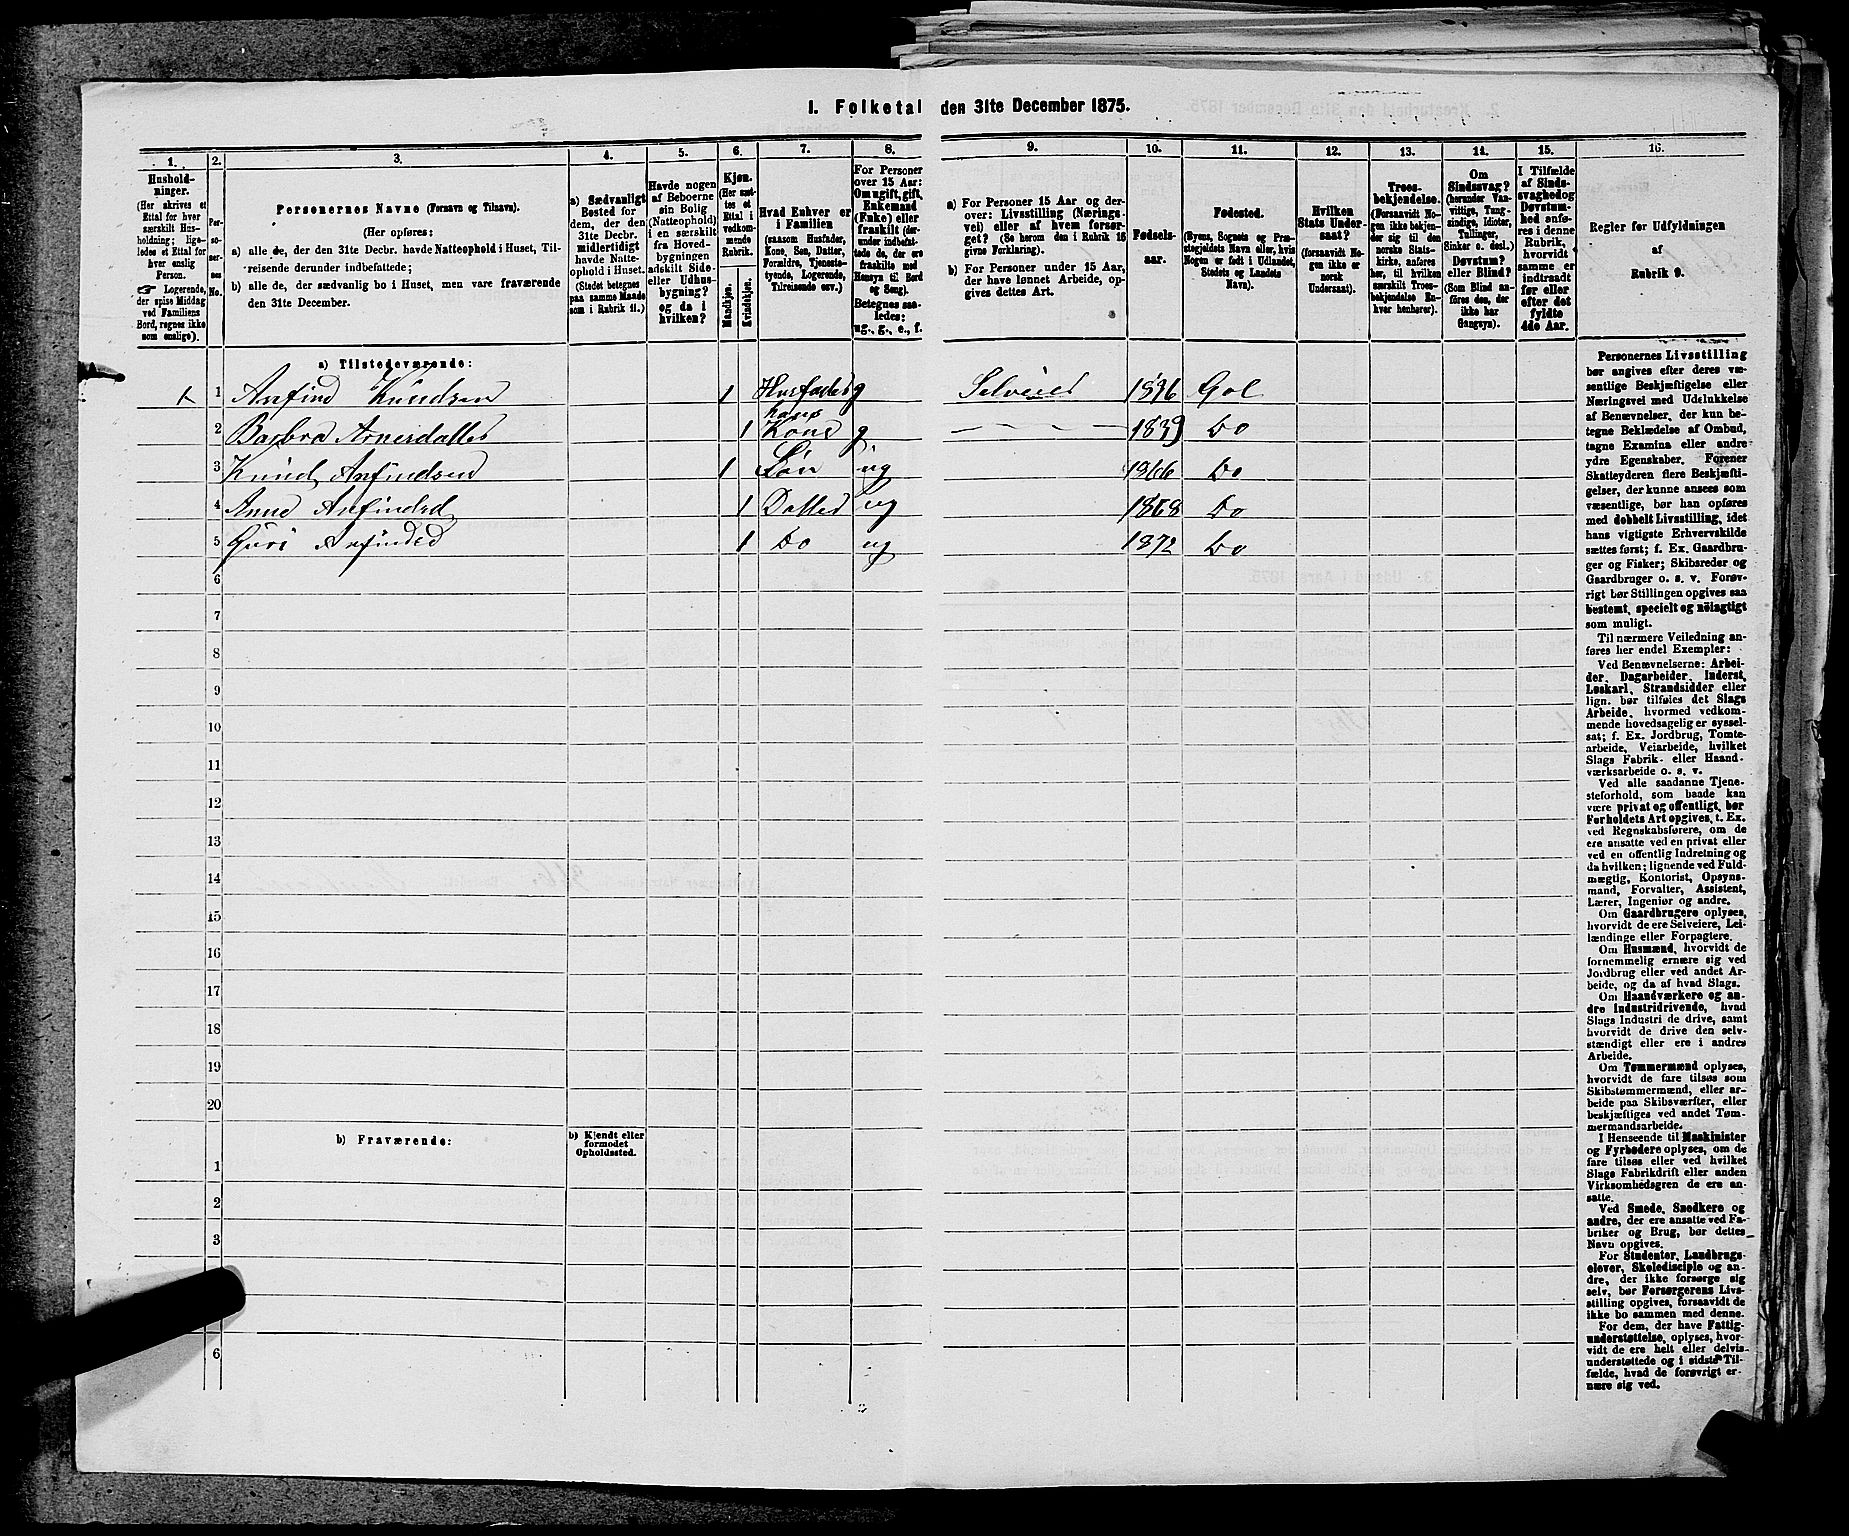 1. Folketal den 31te December 1875.
1. 2. 3. 4. 5. 6. 7. 8. 9. 10. 11. 12. 13. 14. 15. 16.
Hushold-
ninger.
(Her skrives et
Ettal for hver
særskilt Hus-
holdning; lige-
ledes et Ettal for
hver enslig
Person.
☞ Logerende,
der spise Middag
ved Familiens
Bord, regnes ikke
som enslige).
Per-
so-
ner-
nes
No.
Personernes Navne (Fornavn og Tilnavn).
(Her opføres:
a) alle de, der den 31te Decbr. havde Natteophold i Huset, Til-
reisende derunder indbefattede;
b) alle de, der sædvanlig bo i Huset, men vare fraværende
den 31te December.
a) Sædvanligt
Bosted for
dem, der den
31te Decbr.
midlertidigt
havde Natte-
ophold i Huset.
(Stedet betegnes
paa samme Maade
som i Rubrik 11.)
Havde nogen
af Beboerne
sin Bolig
(Natteophold)
i en særskilt
fra Hoved-
bygningen
adskilt Side-
eller Udhus-
bygning?
og da i
hvilken?
Kjøn.
(Her sæt-
tes et
Ettal i
vedkom-
mende
Rubrik.
Mandkjøn.
Kvindekjøn.
Hvad Enhver er
i Familien
(saasom Husfader,
Kone, Søn, Datter,
Forældre, Tjeneste-
tyende, Logerende,
Tilreisende osv.)
For Personer
over 15 Aar:
Om ugift, gift,
Enkemand
(Enke) eller
fraskilt (der-
under indbefat-
tede de, der ere
fraskilte med
Hensyn til Bord
og Seng).
Betegnes saa-
ledes:
ug., g., e., f.
a) For Personer 15 Aar og der-
over: Livsstilling (Nærings-
vei) eller af hvem forsør-
get? (Se herom den i Rubrik 16
givne Forklaring).
b) For Personer under 15 Aar,
der have lønnet Arbeide, op-
gives dettes Art.
Fødsels-
aar.
Fødested.
(Byens, Sognets og Præ-
stegjeldets Navn eller, hvis
Nogen er født i Udlandet,
Stedets og Landets
Navn).
Hvilken
Stats Under-
saat?
(forsaavidt No-
gen ikke er
norsk
Undersaat).
Troes-
bekjendelse.
(Forsaavidt No-
gen ikke bekjen-
der sig til den
norske Stats-
kirke, anføres
her, til hvilken
særskilt Troes-
bekjendelse En-
hver henhører).
Om
Sindssvag?
(herunder Van-
vittige, Tung-
sindige, Idioter,
Tullinger,
Sinker o. desl.)
Døvstum?
eller Blind?
(Som Blind an-
føres den, der
ikke har
Gangsyn).
I Tilfælde
af Sinds-
svaghed og
Døvstum-
hed anfø-
res i denne
Rubrik,
hvorvidt
samme er
indtraadt
før eller
efter det
fyldte
4de Aar.
Regler for Udfyldningen
af
Rubrik 9.
a) Tilstedeværende:
1 Anfind Knudsen 1 Husfader g Selveier 1836 Gol
2 Barbro Arnesdatter 1 hans Kone g 1839 Do
3 Knud Anfindsen 1 Søn ug 1866 Do
4 Anne Anfindsd 1 Datter ug 1868 Do
5 Guri Anfindsd 1 Do ug 1872 Do
6
7
8
9
10
11
12
13
14
15
16
17
18
19
20
b) Fraværende:
b) Kjendt eller
formodet
Opholdssted.
1
2
3
6
Personernes Livsstilling
bør angives efter deres væ-
sentlige Beskjæftigelse eller
Næringsvei med Udelukkelse
af Benævnelser, der kun be-
tegne Beklædelse af Ombud,
tagne Examina eller andre
ydre Egenskaber. Forener
Skatteyderen flere Beskjæfti-
gelser, der kunne ansees som
væsentlige, bør han opføres
med dobbelt Livsstilling, idet
hans vigtigste Erhvervskilde
sættes først; f. Ex. Gaardbru-
ger og Fisker; Skibsreder og
Gaardbruger o. s. v. Forøv-
rigt bør Stillingen opgives saa
bestemt, specielt og nøiagtigt
som muligt.
Til nærmere Veiledning an-
føres her endel Exempler:
Ved Benævnelserne: Arbei-
der, Dagarbeider, Inderst,
Løskarl, Strandsidder eller
lign. bør tilføies det Slags
Arbeide, hvormed vedkom-
mende hovedsagelig er syssel-
sat; f. Ex. Jordbrug, Tomte-
arbeide, Veiarbeide, hvilket
Slags Fabrik- eller Haand-
værksarbeide o. s. v.
Ved alle saadanne Tjene-
steforhold, som baade kan
være privat og offentligt, bør
Forholdets Art opgives, t. Ex.
ved Regnskabsførere, om de
ere ansatte ved en privat eller
ved en offentlig Indretning og
da hvilken; lignende ved Fuld-
mægtig, Kontorist, Opsyns-
mand, Forvalter, Assistent,
Lærer, Ingeniør og andre.
Om Gaardbrugere oplyses,
hvorvidt de ere Selveiere, Lei-
lændinge eller Forpagtere.
Om Husmænd, hvorvidt de
fornemmelig ernære sig ved
Jordbrug eller ved andet Ar-
beide, og da af hvad Slags.
Om Haandværkere og an-
dre Industridrivende, hvad
Slags Industri de drive, samt
hvorvidt de drive den selv-
stændigt eller ere i andres
Arbeide.
Om Tømmermænd oplyses,
hvorvidt de fare tilsøs som
Skibstømmermænd, eller ar-
beide paa Skibsværfter, eller
beskjæftiges ved andet Tøm-
mermandsarbeide.
I Henseende til Maskinister
og Fyrbødere oplyses, om de
fare tilsøs eller ved hvilket
Slags Fabrikdrift eller anden
Virksomhedsgren de ere an-
satte.
Ved Smede, Snedkere og
andre, der ere ansatte ved Fa-
briker og Brug, bør dettes
Navn opgives.
For Studenter, Landbrugs-
elever, Skoledisciple og an-
dre, der ikke forsørge sig
selv, bør Forsørgerens Livs-
stilling opgives, forsaavidt de
ikke bo sammen med denne.
For dem, der have Fattig-
understøttelse, oplyses, hvor-
vidt de ere helt eller delvis
understøttede og i sidste Til-
fælde, hvad de forøvrigt er-
nære sig ved.